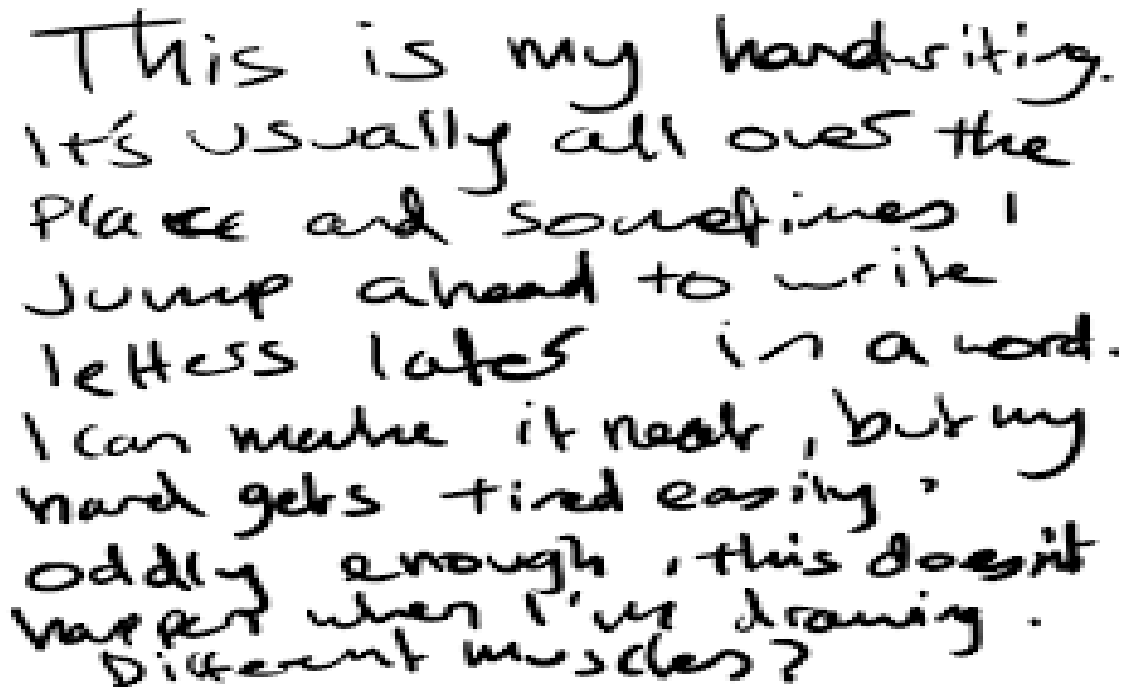 This is my handwriting.
It's usually all over the
Place and sometimes I
Jump ahead to write
letters later in a word.
I can make it neat, but my
hand gets tired easily.
oddly enough, this doesn't
happen when I'm drawing.
Different muscles?